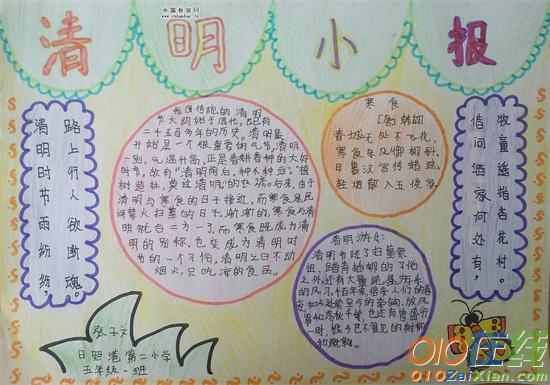 中国板报网
www.cnbanbao.cn
清明小报
清明时节雨纷纷，
路上行人欲断魂。
我国传统的清明
节大约始于周代，已有
二千五百多年的历史。清明最
开始是一个很重要的节气，清明
一到，气温升高，正是春耕春种的大好
时节，故有“清明前后，种瓜种豆”。“植
树造林，莫过清明”的农谚。后来，由于
清明与寒食的日子接近，而寒食是民
间禁火扫墓的日子，渐渐的，寒食与清
明就合二为一了，而寒食既成为清
明的别称，也变成为清明时
节的一个习俗，清明之日不动
烟火，只吃凉的食品。
寒食
[唐]韩翃
春城无处不飞花，
寒食东风御柳斜。
日暮汉宫传蜡烛，
轻烟散入五侯家
借问酒家何处有，
牧童遥指杏花村。
清明游乐：
清明节除了扫墓祭
祖、踏青插柳的习俗
之外，还有大量
日照港第二小学
五年级一班
010在线
010ZaiXian.com